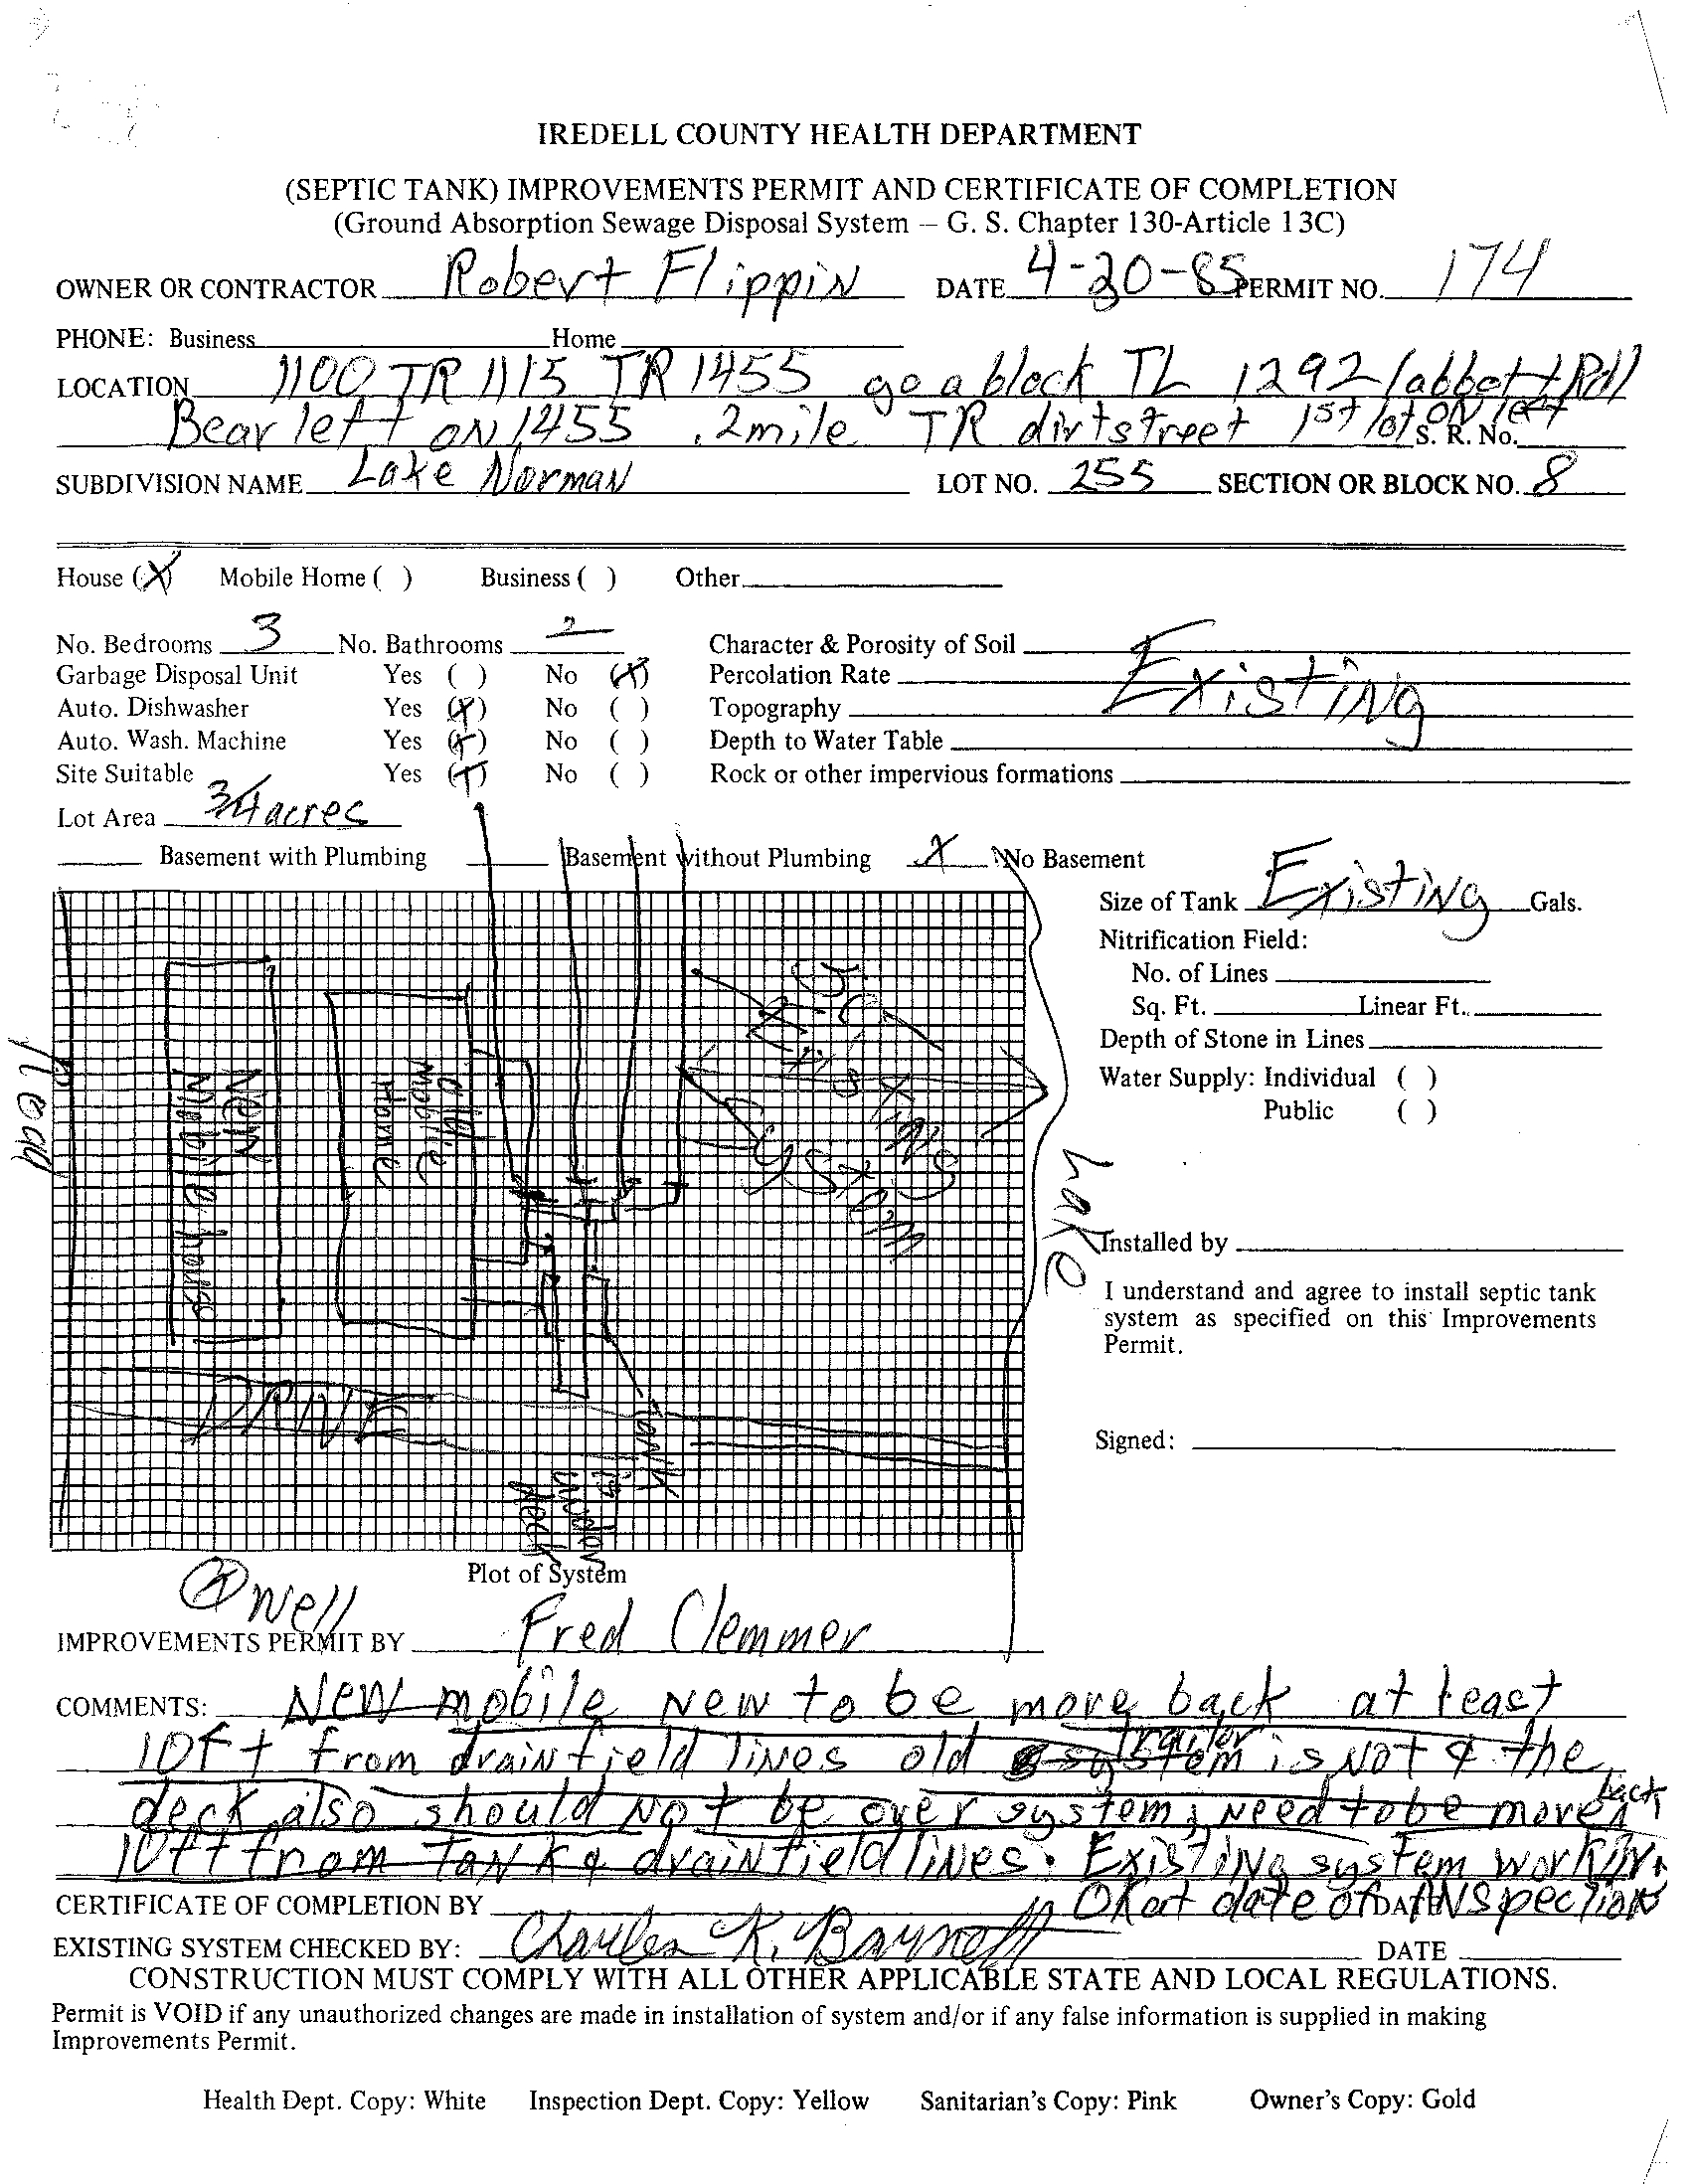 IREDELL COUNTY HEALTH DEPARTMENT
(SEPTIC TANK) IMPROVEMENTS PERMIT AND CERTIFICATE OF COMPLETION
(Ground Absorption Sewage Disposal System – G. S. Chapter 130-Article 13C)
OWNER OR CONTRACTOR Robert Flippin DATE 4-20-85 PERMIT NO. 174
PHONE: Business Home
LOCATION 1100 TR 1115 TR 1455 go a block TL 1292 (abbott Rd)
Bear left ON 1455 .2 mile TR dirt street 1st lot ON left S. R. No.
SUBDIVISION NAME Lake Norman LOT NO. 255 SECTION OR BLOCK NO. 8
House (X) Mobile Home ( ) Business ( ) Other
No. Bedrooms 3 No. Bathrooms 2 Character & Porosity of Soil Existing
Garbage Disposal Unit Yes ( ) No (X) Percolation Rate
Auto. Dishwasher Yes (X) No ( ) Topography
Auto. Wash. Machine Yes (X) No ( ) Depth to Water Table
Site Suitable Yes (X) No ( ) Rock or other impervious formations
Lot Area 3/4 acres
Basement with Plumbing Basement without Plumbing X No Basement
Size of Tank Existing Gals.
Nitrification Field:
No. of Lines
Sq. Ft. Linear Ft.
Depth of Stone in Lines
Water Supply: Individual ( )
Public ( )
Road
New Mobile house
Old Mobile Home
Existing System
Lake
DRIVE
Tank is under deck
Installed by
I understand and agree to install septic tank
system as specified on this Improvements
Permit.
Signed:
Plot of System
Well
IMPROVEMENTS PERMIT BY Fred Clemmer
COMMENTS: New mobile New to be move back at least
10ft from drainfield lines old trailer is Not & the
deck also should Not be over system, Need to be move back
10ft from Tank & drainfield lines. Existing system working
OK at date of INspection
CERTIFICATE OF COMPLETION BY DATE
EXISTING SYSTEM CHECKED BY: Charles K. Barnett DATE
CONSTRUCTION MUST COMPLY WITH ALL OTHER APPLICABLE STATE AND LOCAL REGULATIONS.
Permit is VOID if any unauthorized changes are made in installation of system and/or if any false information is supplied in making
Improvements Permit.
Health Dept. Copy: White Inspection Dept. Copy: Yellow Sanitarian's Copy: Pink Owner's Copy: Gold